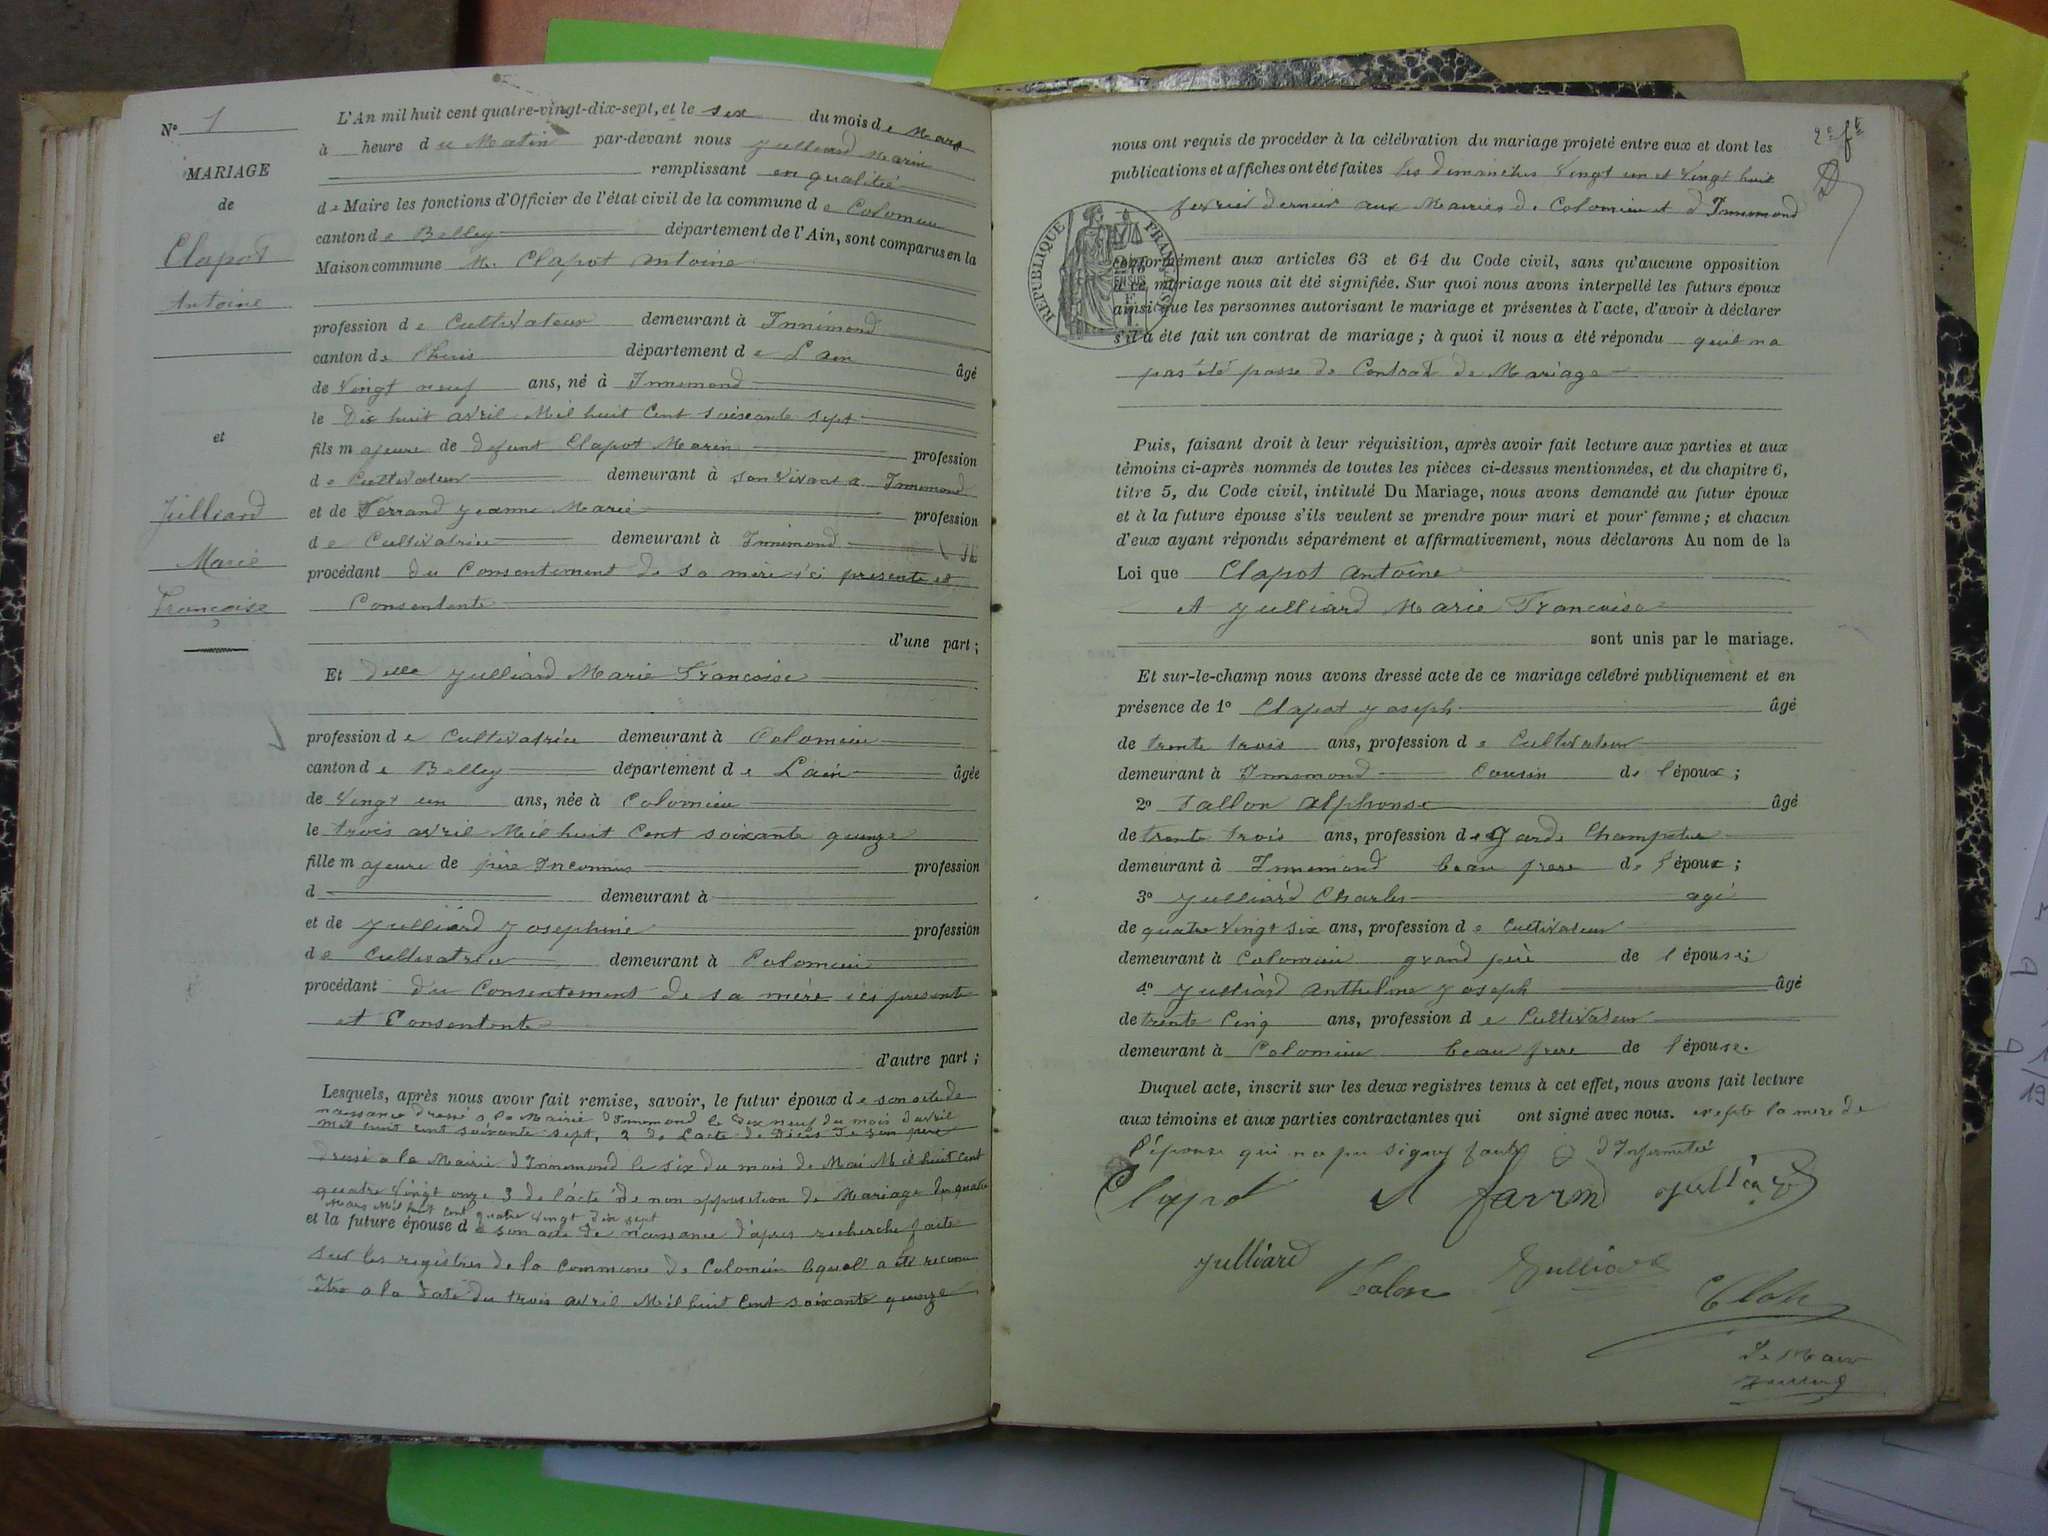 N° 1
MARIAGE
de
Clapot
Antoine
et
Julliard
Marie
Francoise
L'An mil huit cent quatre-vingt-dix-sept, et le six du mois de Mars
à heure du Matin par-devant nous Julliard Marin
remplissant en qualité
de Maire les fonctions d'Officier de l'état civil de la commune de Colomieu
canton de Belley département de l'Ain, sont comparus en la
Maison commune M. Clapot Antoine
profession de Cultivateur demeurant à Innimond
canton de Lhuis département de L'ain âgé
de Vingt neuf ans, né à Innimond
le Dix huit avril Mil huit Cent soixante sept
fils majeure de defunt Clapot Marin profession
de Cultivateur demeurant à son Vivant a Innimond
et de Ferrand Jeanne Marie profession
de Cultivatrice demeurant à Innimond
procédant du Consentement de sa mère ici presente et
Consentente
d'une part ;
Et Delle Julliard Marie Francoise
profession de Cultivatrice demeurant à Colomieu
canton de Belley département de L'ain âgée
de Vingt un ans, née à Colomieu
le trois avril Mil huit Cent soixante quinze
fille majeure de père Inconnus profession
d demeurant à
et de Julliard Josephine profession
de Cultivatrice demeurant à Colomieu
procédant du Consentement de sa mère ici presente
et Consentente
d'autre part ;
Lesquels, après nous avoir fait remise, savoir, le futur époux de son acte de
naissance dressé a la Mairie d'Innimond le Dix neuf du mois d'avril
mil huit cent soixante sept, 2 de L'acte de Décès de son père
dressé a la Mairie d'Innimond le six du mois de Mai Mil huit Cent
quatre Vingt onze 3 de l'acte de non opposition de Mariage du quatre
Mars Mil huit Cent quatre Vingt Dix sept
et la future épouse de son acte de naissance d'apres recherche faite
sur les registres de la Commune de Colomieu lequel a été reconu
être a la date du trois avril Mil huit Cent soixante quinze
2e ft
nous ont requis de procéder à la célébration du mariage projeté entre eux et dont les
publications et affiches ont été faites les dimanches Vingt un et Vingt huit
fevrier dernier aux Mairies de Colomieu et d'Innimond
RÉPUBLIQUE FRANÇAISE
conformément aux articles 63 et 64 du Code civil, sans qu'aucune opposition
à ce mariage nous ait été signifiée. Sur quoi nous avons interpellé les futurs époux
ainsi que les personnes autorisant le mariage et présentes à l'acte, d'avoir à déclarer
s'il a été fait un contrat de mariage ; à quoi il nous a été répondu quil na
pas été passe de Contrat de Mariage
Puis, faisant droit à leur réquisition, après avoir fait lecture aux parties et aux
témoins ci-après nommés de toutes les pièces ci-dessus mentionnées, et du chapitre 6,
titre 5, du Code civil, intitulé Du Mariage, nous avons demandé au futur époux
et à la future épouse s'ils veulent se prendre pour mari et pour femme ; et chacun
d'eux ayant répondu séparément et affirmativement, nous déclarons Au nom de la
Loi que Clapot Antoine
et Julliard Marie Francoise
sont unis par le mariage.
Et sur-le-champ nous avons dressé acte de ce mariage célébré publiquement et en
présence de 1° Clapot Joseph âgé
de trente trois ans, profession de Cultivateur
demeurant à Innimond Cousin de l'époux ;
2° Tallon Alphonse âgé
de trente trois ans, profession de Garde Champetre
demeurant à Innimond beau frere de l'époux ;
3° Julliard Charles agé
de quatre Vingt six ans, profession de Cultivateur
demeurant à Colomieu grand père de l'épouse
4° Julliard Anthelme Joseph âgé
de trente Cinq ans, profession de Cultivateur
demeurant à Colomieu beau frere de l'épouse.
Duquel acte, inscrit sur les deux registres tenus à cet effet, nous avons fait lecture
aux témoins et aux parties contractantes qui ont signé avec nous. exepté la mere de
l'épouse qui na pu signer faute d'Infirmité
Clapot
Julliard
Julliard
Le Maire